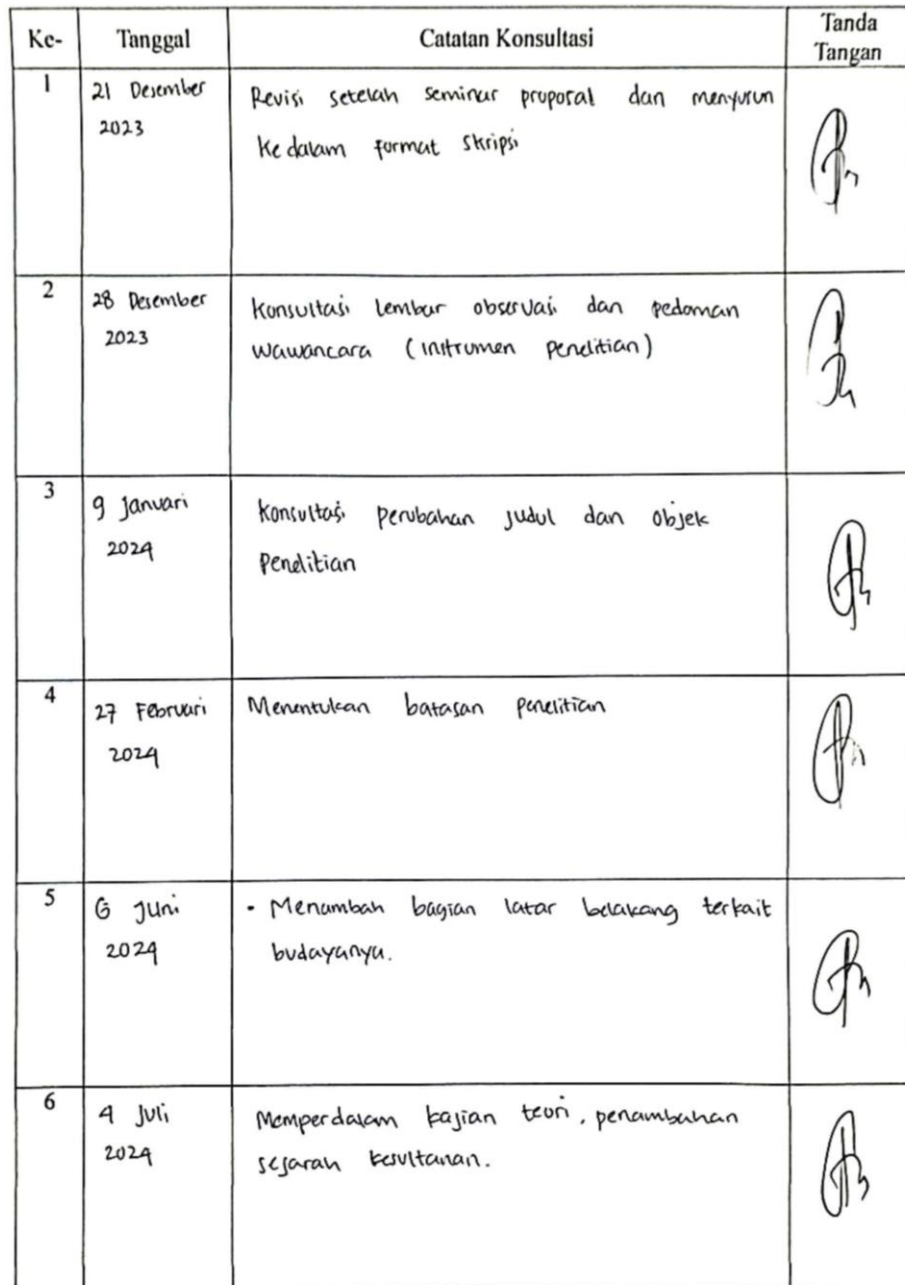 Ke- Tanggal Catatan Konsultasi Tanda
Tangan
1 21 Desember Revisi setelah seminar proposal dan menyusun
2023 ke dalam format skripsi
2 28 Desember Konsultasi lembar observasi dan pedoman
2023 wawancara (instrumen penelitian)
3 9 Januari Konsultasi perubahan judul dan objek
2024 penelitian
4 27 Februari Menentukan batasan penelitian
2024
5 6 Juni - Menambah bagian latar belakang terkait
2024 budayanya.
6 4 Juli Memperdalam kajian teori, penambahan
2024 sejarah kesultanan.